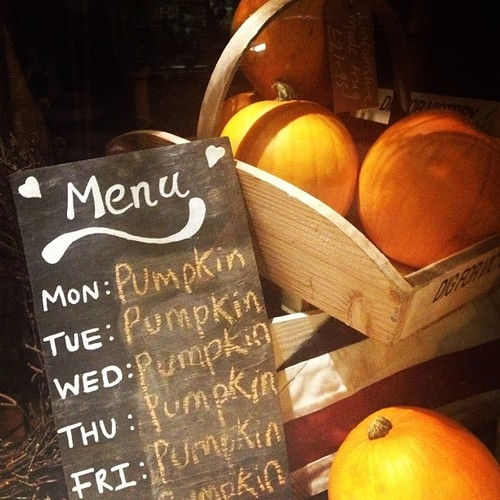 Menu
MON: Pumpkin
TUE: Pumpkin
WED: Pumpkin
THU: Pumpkin
FRI: Pumpkin
Pumpkin
DIG FOR
DIG FOR VICTORY